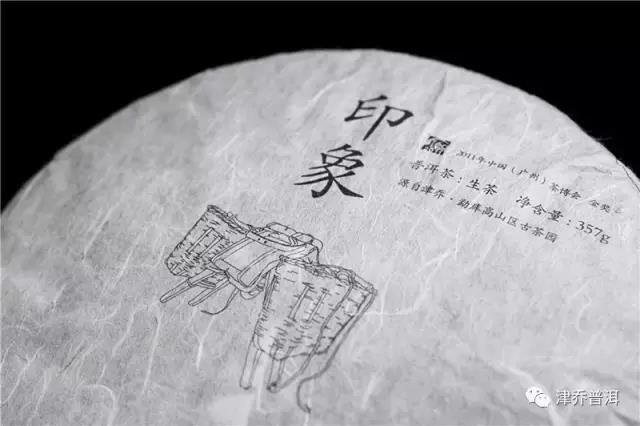 印
象
2011年中国(广州)茶博会 金奖
普洱茶:生茶 净含量:357g
源自津乔·勐库高山区古茶园
津乔普洱